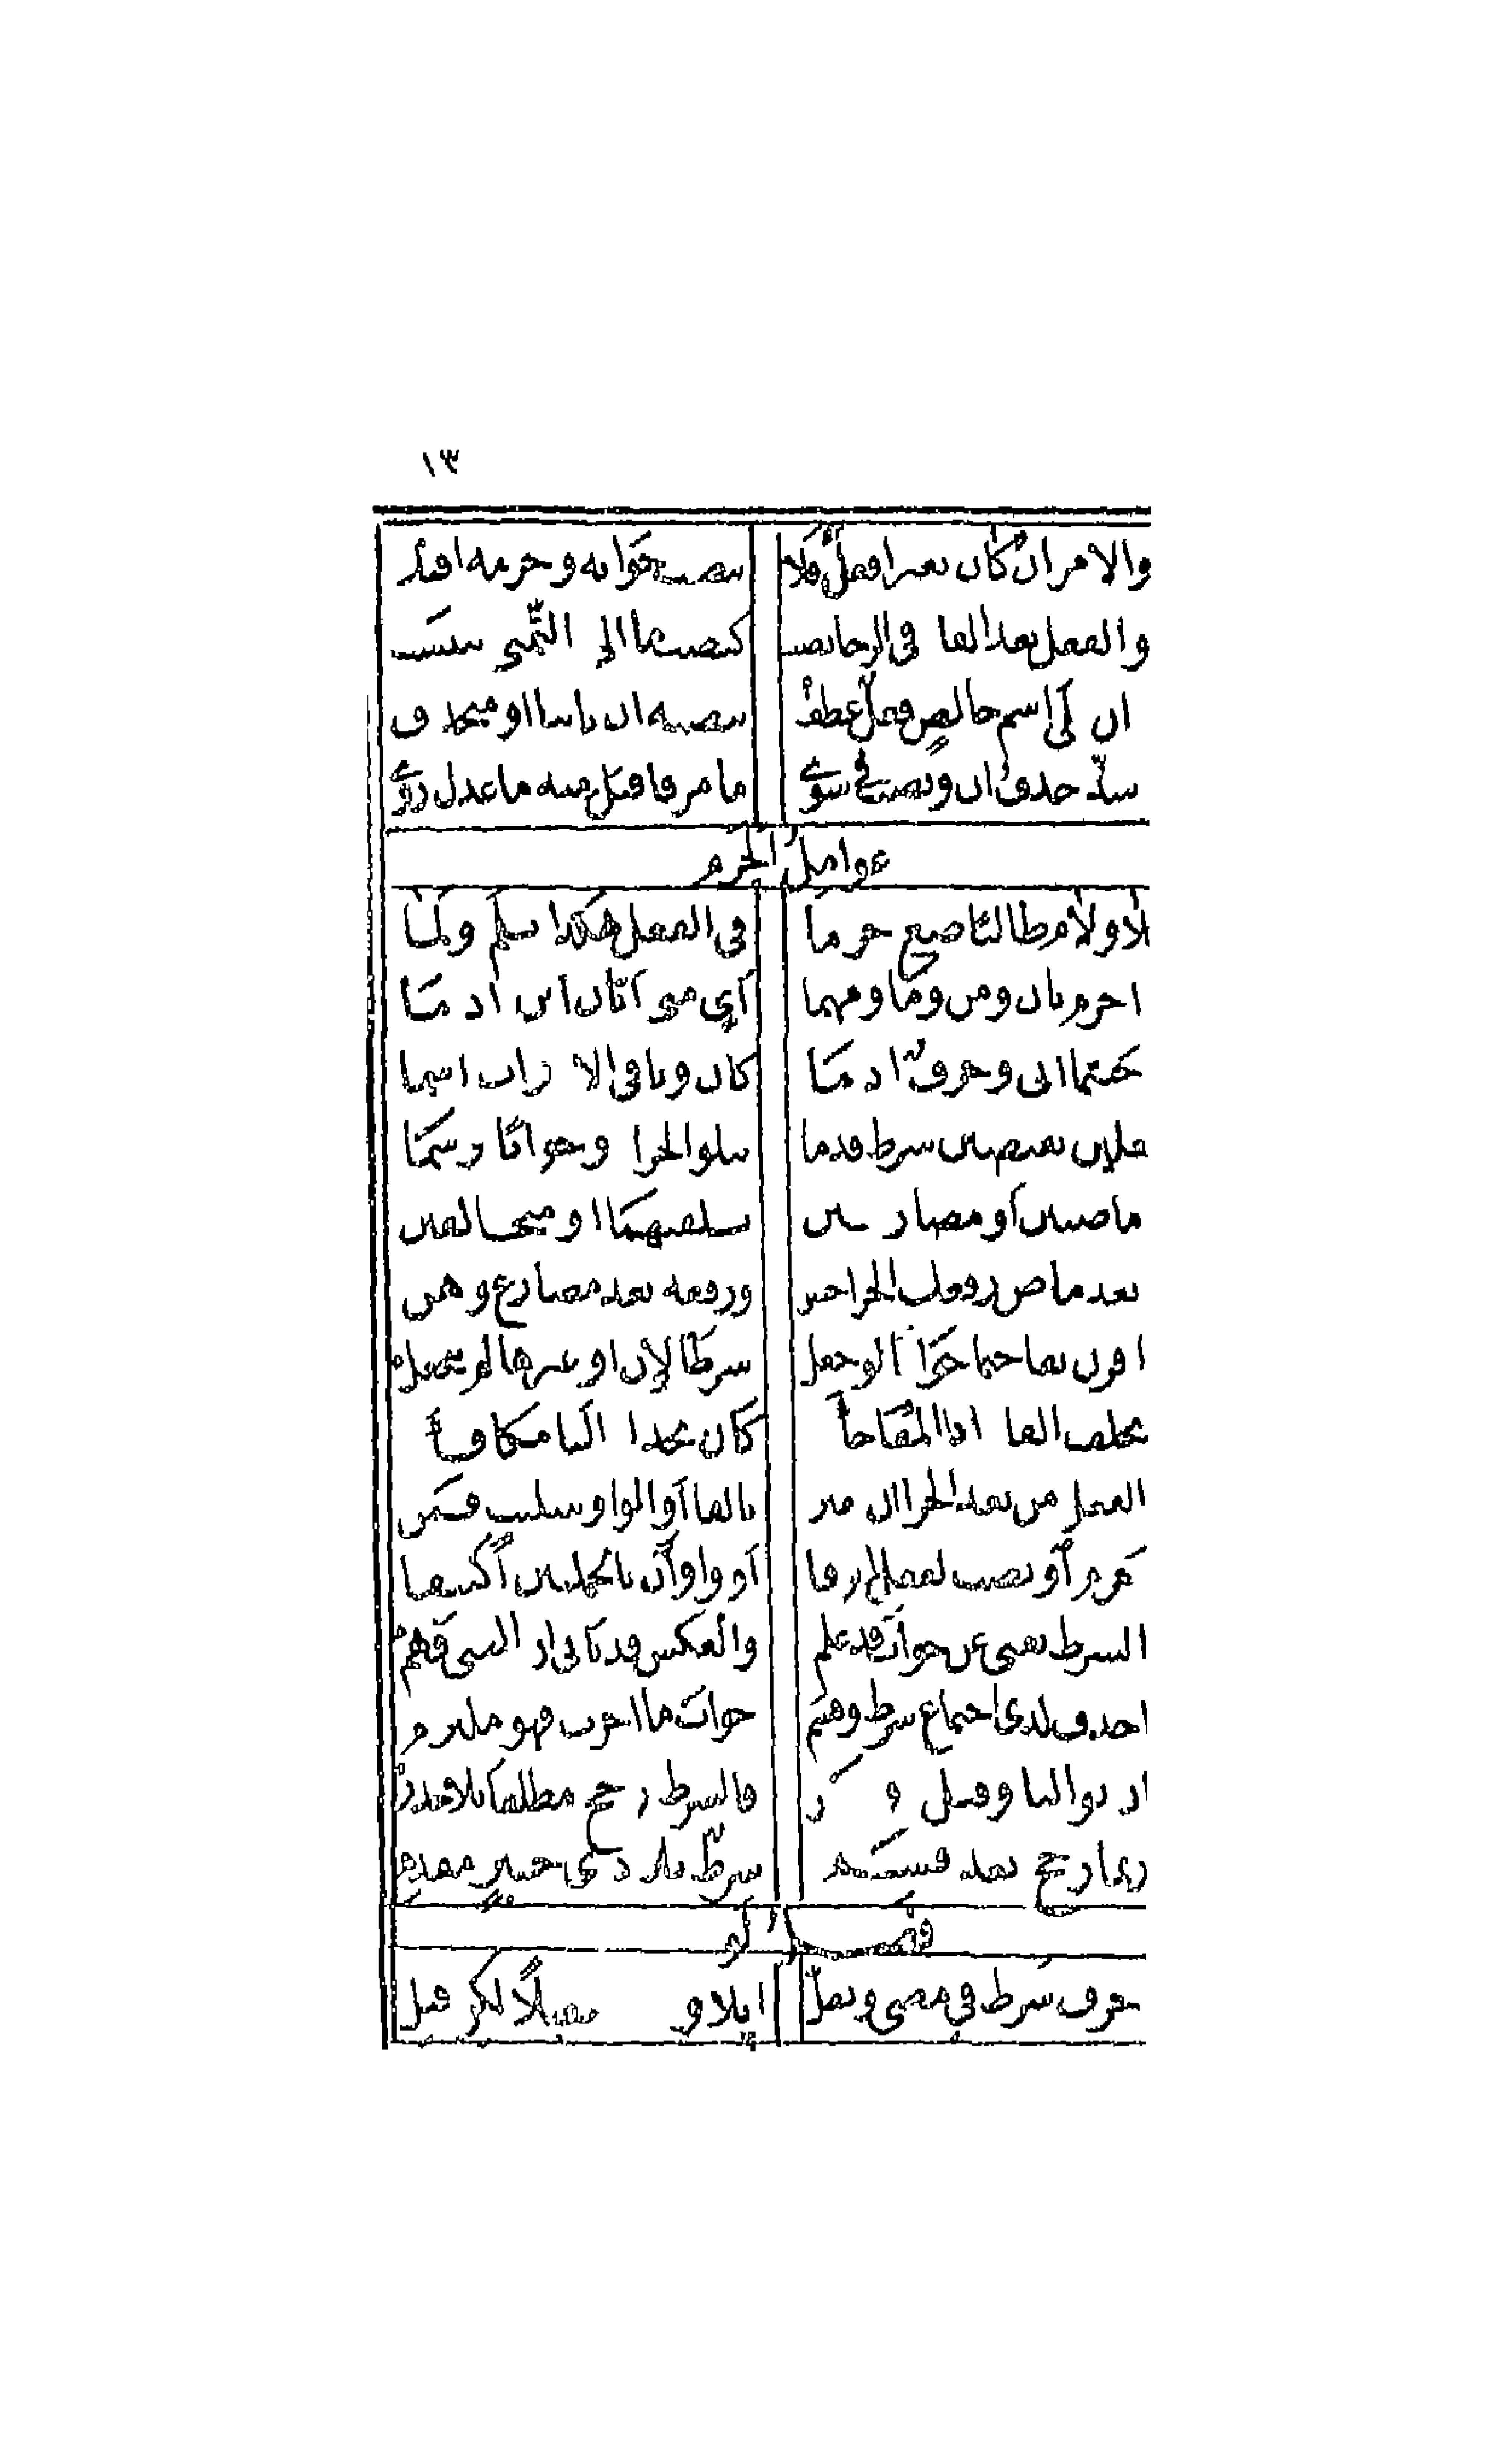 ٣١
والامر ان كان بغير افعل فلا تنصب جوابه وجزمه اقبلا
والفعل بعد الفا في الرجا نصب كنصب ما الى التمني ينتسب
ان على اسم خالص فعل عطف تنصبه ان ثابتا او منحذف
وشذ حذف ان ونصب في سوى ما مر فاقبل منه ما عدل روى
عوامل الجزم
بلا ولام طالبا ضع جزما في الفعل هكذا بلم ولما
اجزم بان ومن وما ومهما اي متى ايان اين اذ ما
حيثما انى وحرف اذ ما كان وباقي الادوات اسما
فعلين يقتضين شرط قدما يتلو الجزا وجوابا وسما
ماضيين او مضارعين تلفيهما او متخالفين
وبعد ماض رفعك الجزا حسن ورفعه بعد مضارع وهن
اقرن بفا حتما جوابا لو جعل شرطا لان او غيرها لم ينجعل
وتخلف الفا اذا المفاجأة كان تجد اذا لنا مكافأة
والفعل من بعد الجزا ان يقترن بالفا او الواو بتثليث قمن
وجزم او نصب لفعل اثر فا او واو ان بالجملتين اكتنفا
والشرط يغني عن جواب قد علم والعكس قد يأتي ان المعنى فهم
واحذف لدى اجتماع شرط وقسم جواب ما اخرت فهو ملتزم
وان تواليا وقبل ذو خبر فالشرط رجح مطلقا بلا حذر
وربما رجح بعد قسم شرط بلا ذي خبر مقدم
فصل لو
لو حرف شرط في مضي ويقل ايلاؤه مستقبلا لكن قبل